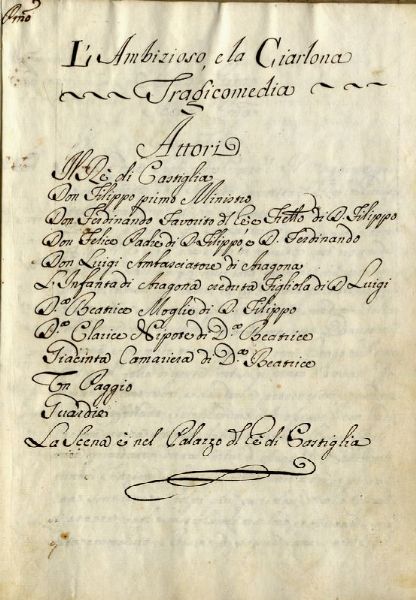 Pmo
L'Ambizioso, e la Ciarlona
Tragicomedia
Attori
Il Rè di Castiglia
Don Filippo primo Ministro
Don Ferdinando Favorito dl Rè e Fratto di D. Filippo
Don Felice Padre di D. Filippo, e D. Ferdinando
Don Luigi Ambasciatore di Aragona
L'Infanta di Aragona creduta Figliola di D Luigi
D.ª Beatrice Moglie di D. Filippo
D.ª Clarice Nipote di D.ª Beatrice
Giacinta Camariera di D.ª Beatrice
Un Paggio
Guardie
La Scena è nel Palazzo dl Rè di Castiglia